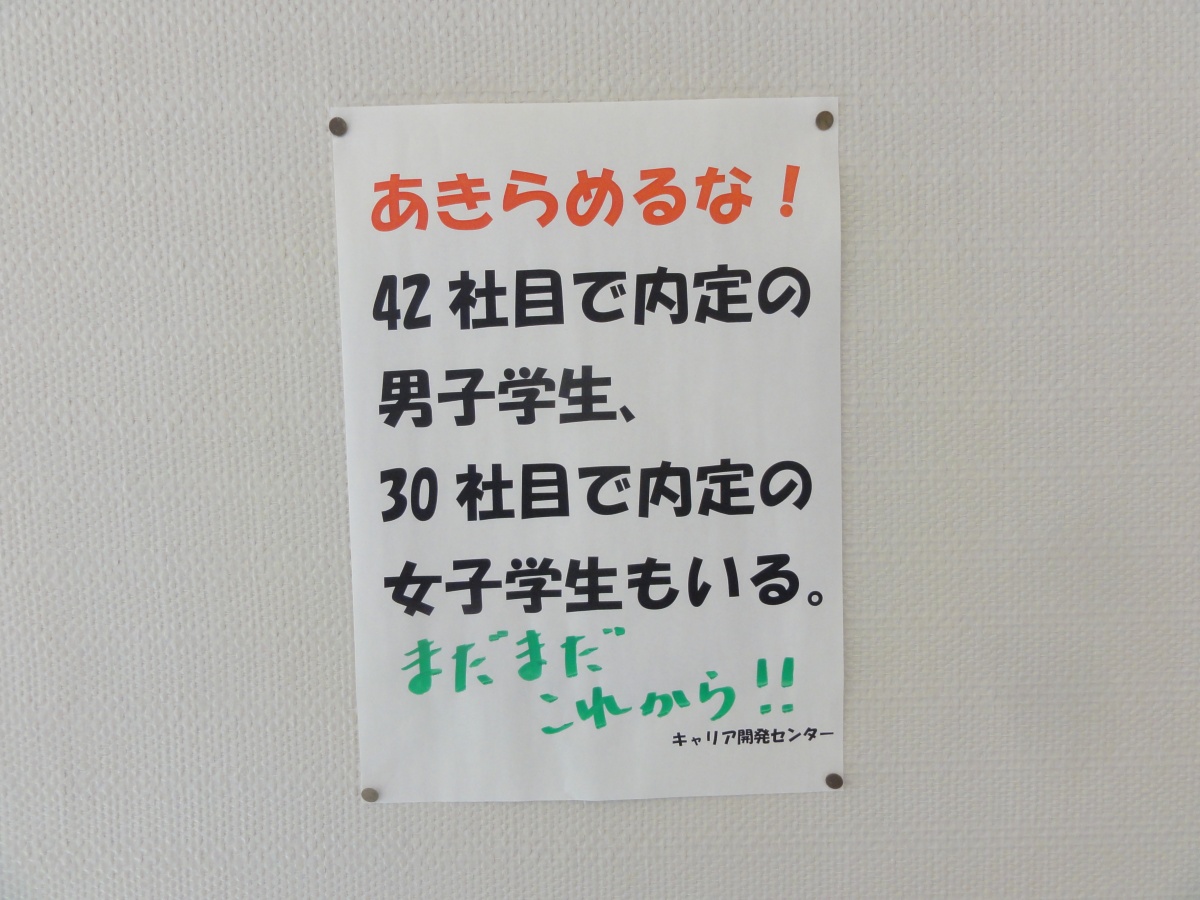 あきらめるな！
42社目で内定の
男子学生、
30社目で内定の
女子学生もいる。
まだまだ
これから!!
キャリア開発センター